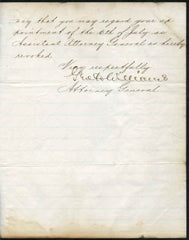 say that you may regard your ap
pointment of the 6th of July, as
Assistant Attorney General as hereby
revoked.
Very respectfully
Geo H Williams
Attorney General